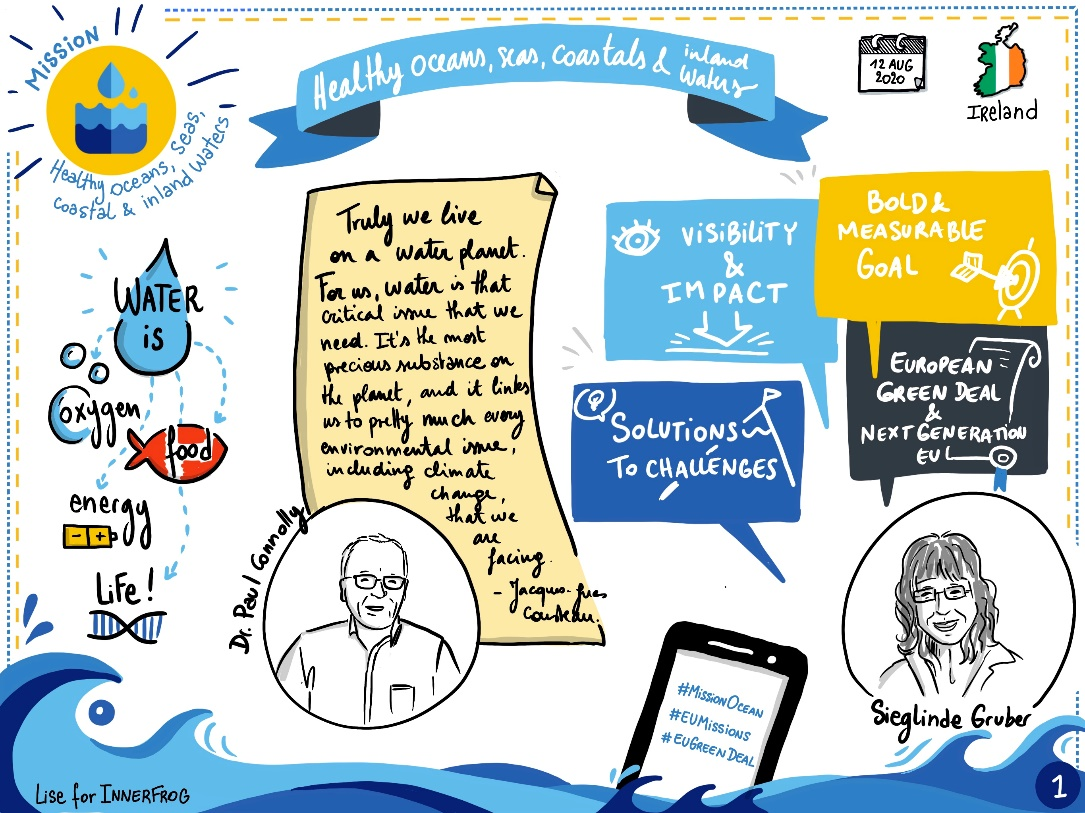 MISSION
Healthy Oceans, Seas,
coastal & inland waters
Healthy Oceans, seas, Coastals & inland
Waters
12 AUG
2020
IReland
WATER
is
oxygen
food
energy
- +
LiFe!
Truly we live
on a water planet.
For us, water is that
critical issue that we
need. It's the most
precious substance on
the planet, and it links
us to pretty much every
environmental issue,
including climate
change,
that we
are
facing.
- Jacques-Yves
Cousteau.
Dr. Paul Connolly
VISIBILITY
&
IMPACT
BOLD &
MEASURABLE
GOAL
SOLUTIONS
TO CHALLENGES
EUROPEAN
GREEN DEAL
&
NEXT GENERATION
EU
Sieglinde Gruber
#MissionOcean
#EUMissions
#EUGreen Deal
Lise for INNERFROG
1